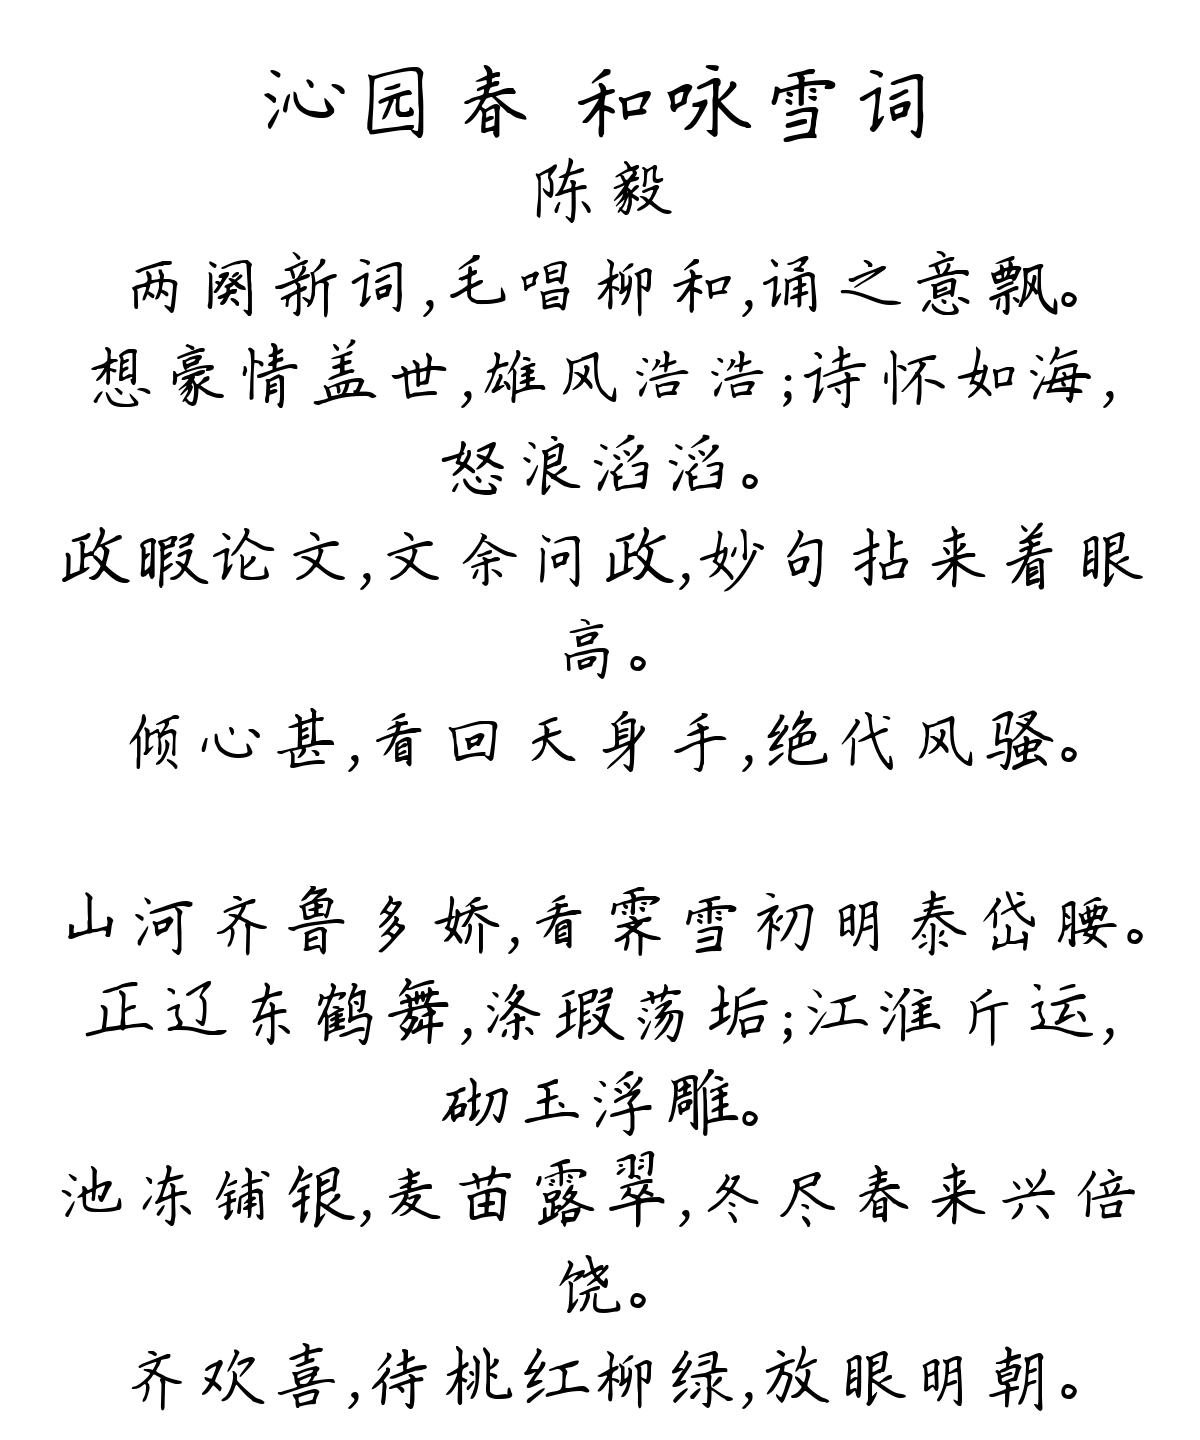 沁园春 和咏雪词
陈毅
两阕新词,毛唱柳和,诵之意飘。
想豪情盖世,雄风浩浩;诗怀如海,
怒浪滔滔。
政暇论文,文余问政,妙句拈来着眼
高。
倾心甚,看回天身手,绝代风骚。
山河齐鲁多娇,看霁雪初明泰岱腰。
正辽东鹤舞,涤瑕荡垢;江淮斤运,
砌玉浮雕。
池冻铺银,麦苗露翠,冬尽春来兴倍
饶。
齐欢喜,待桃红柳绿,放眼明朝。